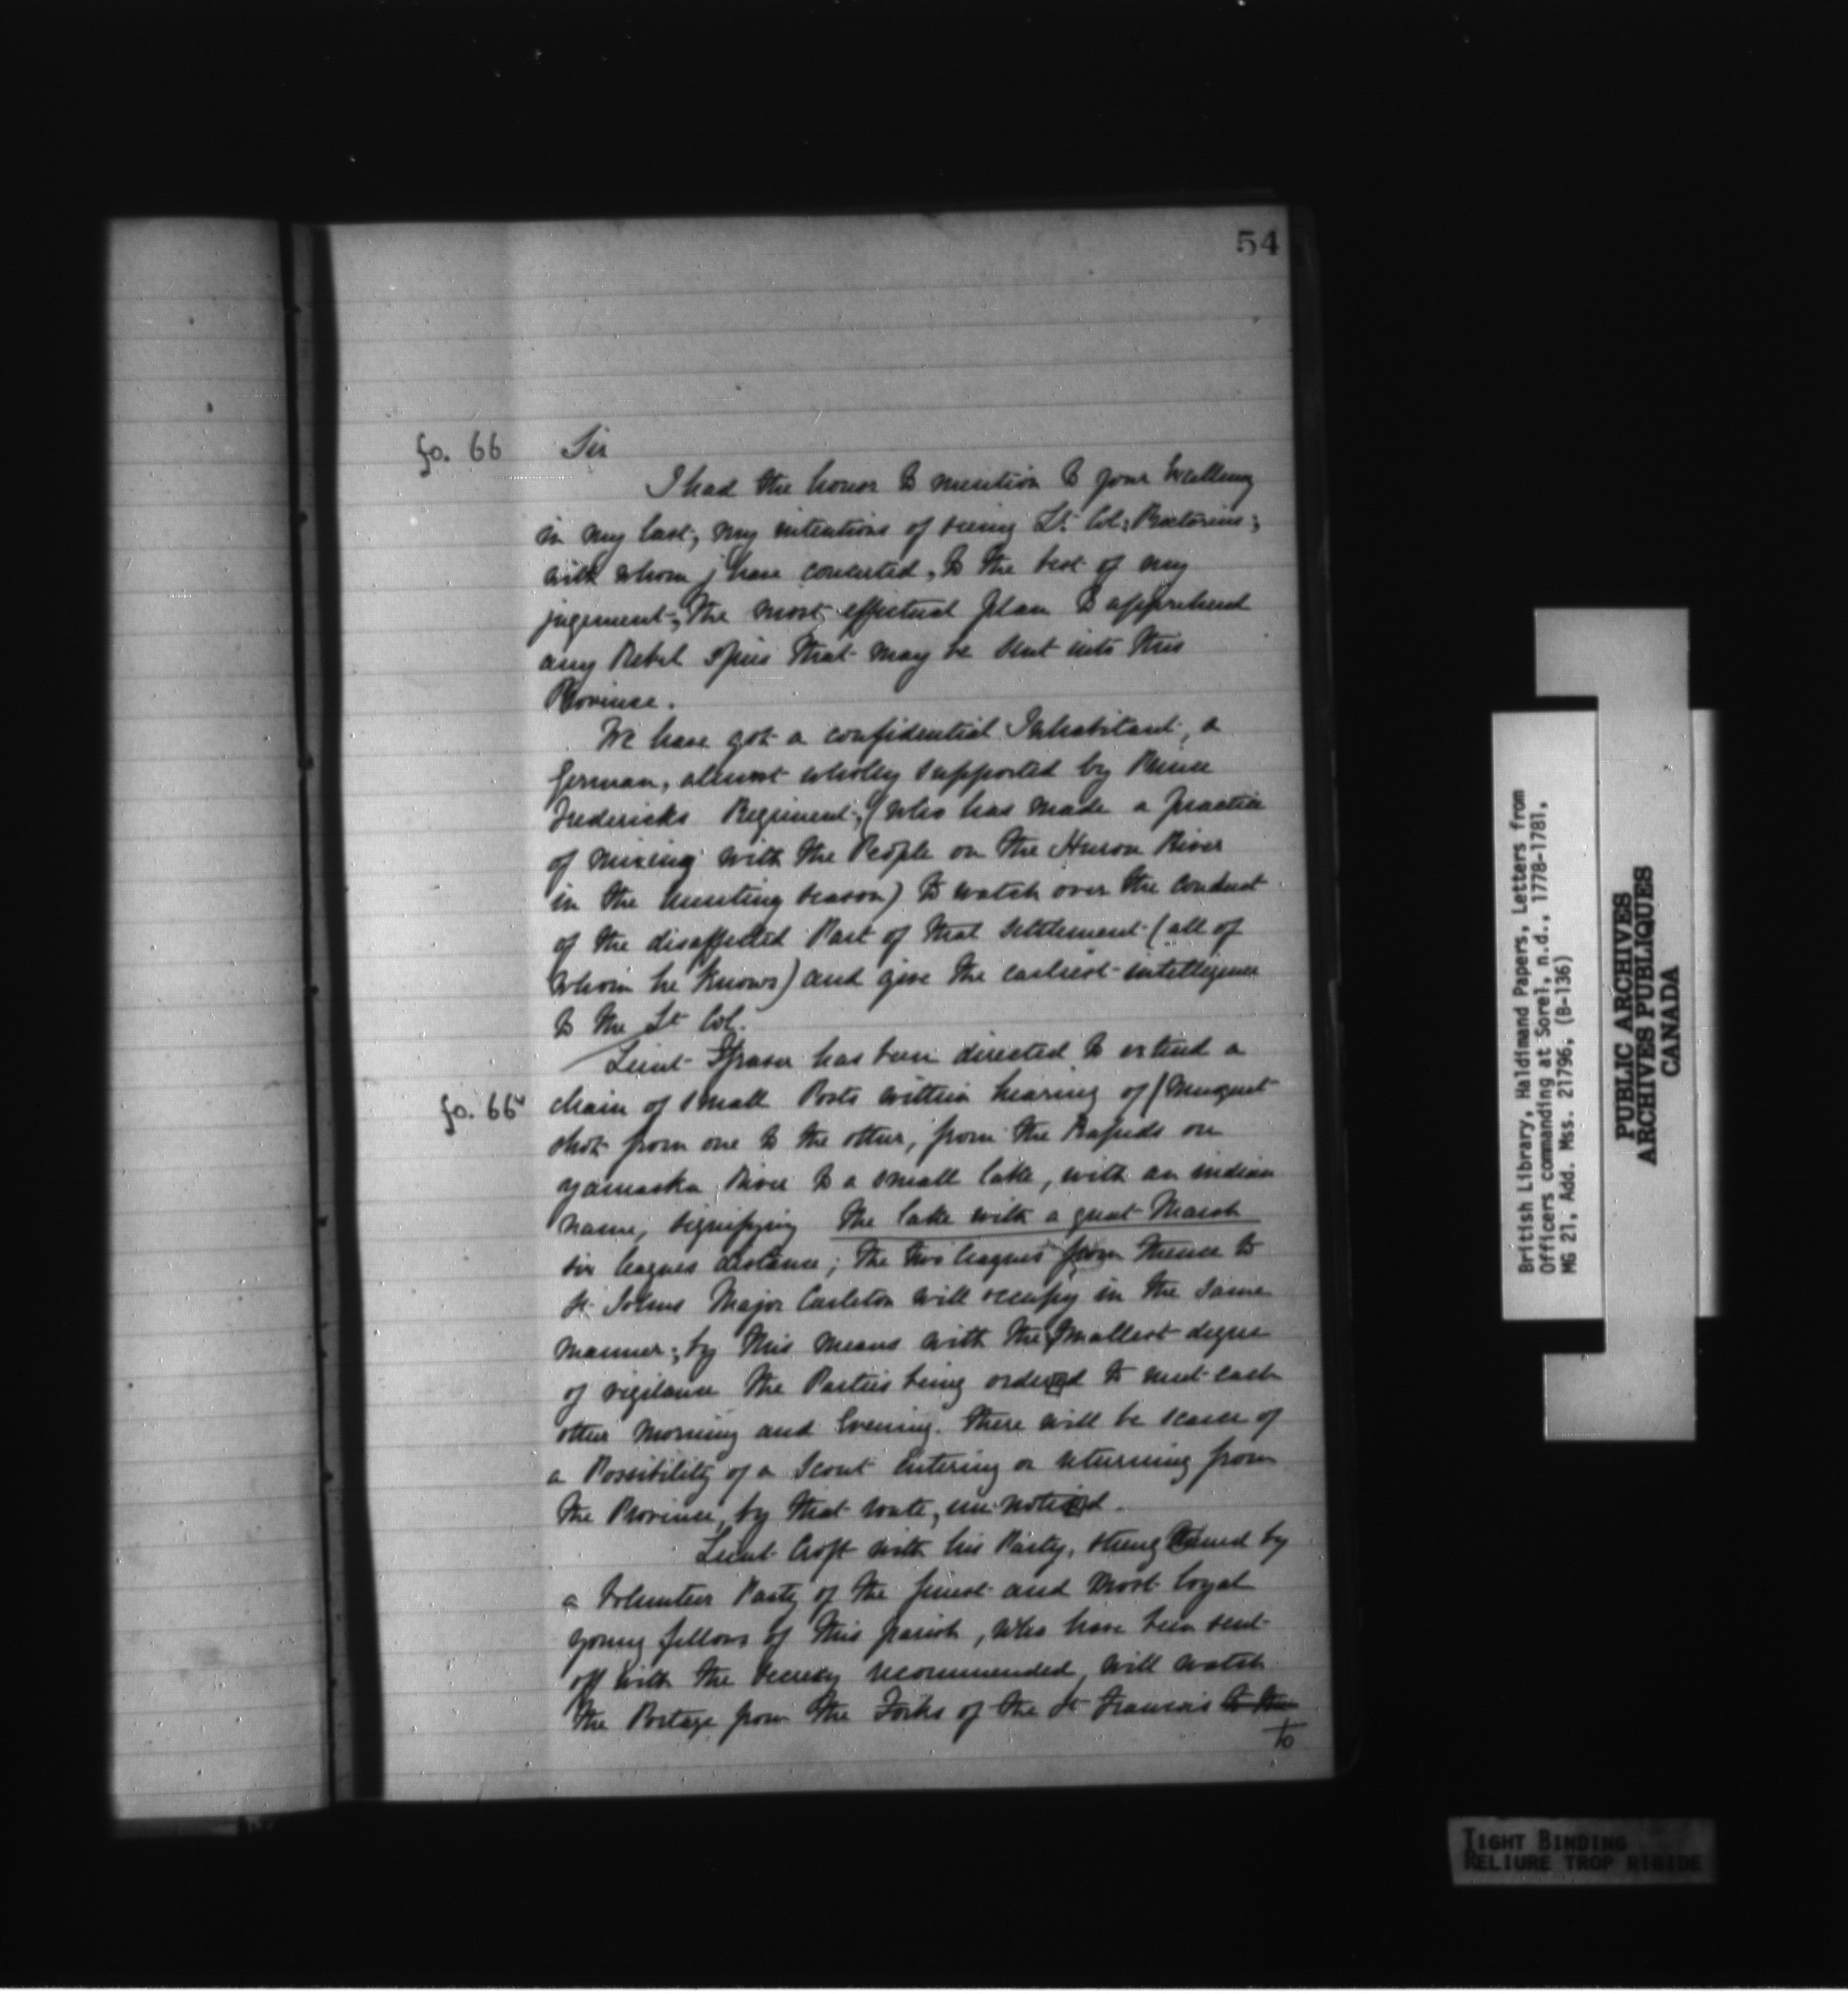 54
fo. 66 Sir
I had the honor to mention to your Excellency
in my last, my intentions of seeing Lt. Col: Praetorius;
with whom j have concerted, to the best of my
jugement, the most effectual plan to apprehend
any Rebel spies that may be sent into this
Province.
We have got a confidential Inhabitant, a
German, almost wholly supported by Prince
Fredericks Regiment, (who has made a practice
of mixing with the People on the Huron River
in the hunting season) to watch over the conduct
of the disaffected Part of that settlement (all of
whom he knows) and give the earliest intelligence
to the Lt Col.
Lieut Fraser has been directed to extend a
fo. 66v chain of small Posts within hearing of (Musquet
shot from one to the other, from the Rapids on
yamaska River to a small lake, with an indian
name, signifying the lake with a great Marsh
six leagues distance; the two leagues from thence to
St Johns Major Carleton will occupy in the same
manner; by this means with the smallest degree
of vigilance the Parties being ordered to meet each
other Morning and Evening. there will be scarce of
a Possibility of a Scout entering or returning from
the Province, by that route, un-noticed.
Lieut Croft with his Party, strengthened by
a Volunteer Party of the finest and most loyal
young fellows of this parish, who have been sent
off with the secrecy recommended, will watch
the Portage from the Forks of the St Francois to the
to
British Library, Haldimand Papers, Letters from
Officers commanding at Sorel, n.d., 1778-1781,
MG 21, Add. Mss. 21796, (B-136)
PUBLIC ARCHIVES
ARCHIVES PUBLIQUES
CANADA
TIGHT BINDING
RELIURE TROP RIGIDE